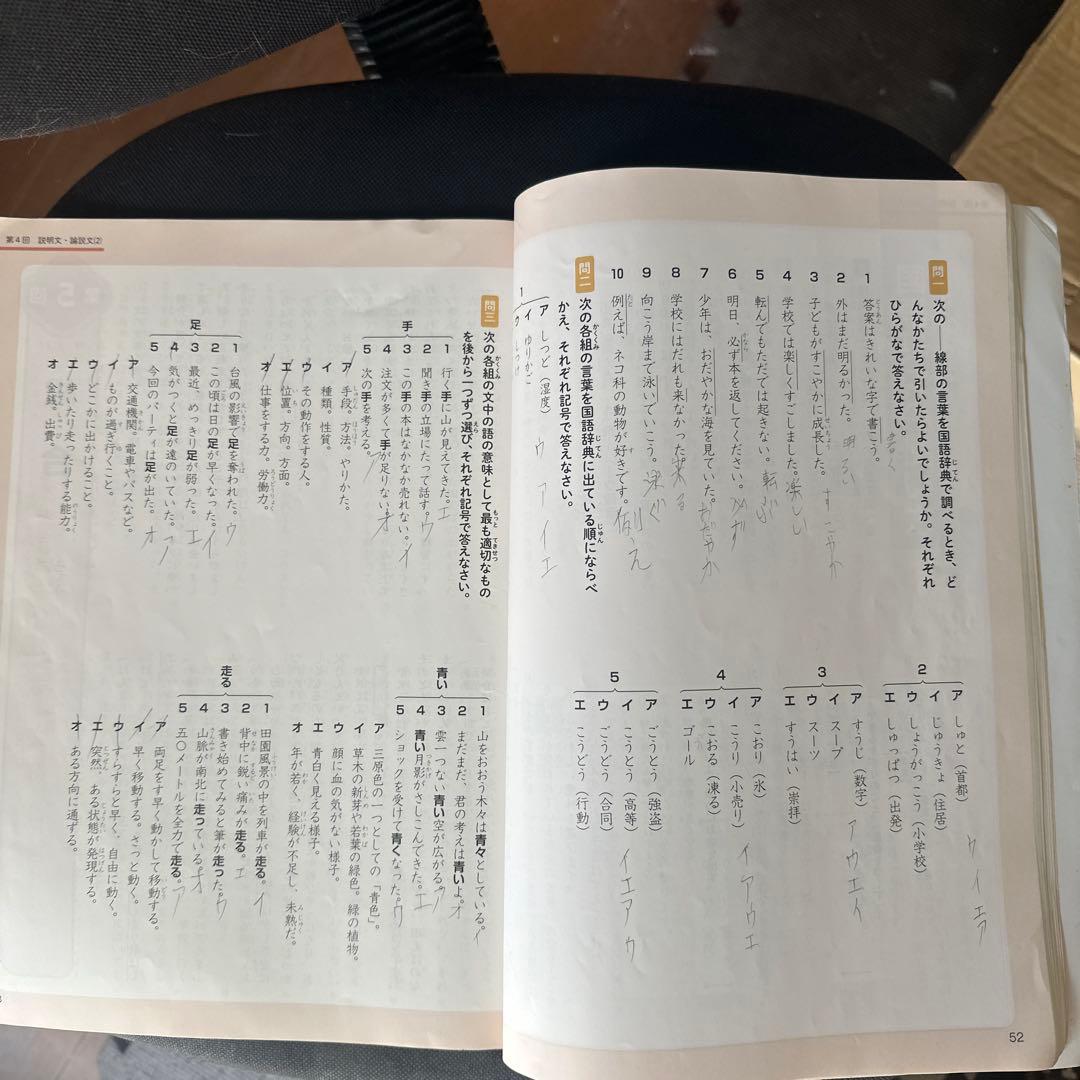 問一 次の――線部の言葉を国語辞典で調べるとき、ど
んなかたちで引いたらよいでしょうか。それぞれ
ひらがなで答えなさい。
1 答案はきれいな字で書こう。 書く
2 外はまだ明るかった。 明るい
3 子どもがすこやかに成長した。 すこやか
4 学校では楽しくすごしました。 楽しい
5 転んでもただでは起きない。 転ぶ
6 明日、必ず本を返してください。 必ず
7 少年は、おだやかな海を見ていた。 おだやか
8 学校にはだれも来なかった。 来る
9 向こう岸まで泳いでいこう。 泳ぐ
10 例えば、ネコ科の動物が好きです。
問二 次の各組の言葉を国語辞典に出ている順にならべ
かえ、それぞれ記号で答えなさい。
1
ア しつど(湿度)
イ ゆりかご
ウ
ウ ア イ エ
2
ア しゅと(首都)
イ じゅうきょ(住居)
ウ しょうがっこう(小学校)
エ しゅっぱつ(出発)
ウ イ エ ア
3
ア すうじ(数字)
イ スープ
ウ スーツ
エ すうはい(崇拝)
ア ウ エ イ
4
ア こおり(氷)
イ こうり(小売り)
ウ こおる(凍る)
エ ゴール
イ ア ウ エ
5
ア ごうとう(強盗)
イ こうとう(高等)
ウ ごうどう(合同)
エ こうどう(行動)
イ エ ア ウ
52
第4回 説明文・論説文(2)
問三 次の各組の文中の語の意味として最も適切なもの
を後から一つずつ選び、それぞれ記号で答えなさい。
手
1 行く手に山が見えてきた。 エ
2 聞き手の立場にたって話す。 ウ
3 この手の本はなかなか売れない。 イ
4 注文が多くて手が足りない。 オ
5 次の手を考える。 ア
ア 手段。方法。やりかた。
イ 種類。性質。
ウ その動作をする人。
エ 位置。方向。方面。
オ 仕事をする力。労働力。
足
1 台風の影響で足を奪われた。 ウ
2 この頃は日の足が早くなった。 イ
3 最近、めっきり足が弱った。 エ
4 気がつくと足が遠のいていた。 ア
5 今回のパーティは足が出た。 オ
ア 交通機関。電車やバスなど。
イ ものが過ぎ行くこと。
ウ どこかに出かけること。
エ 歩いたり走ったりする能力。
オ 金銭。出費。
青い
1 山をおおう木々は青々としている。 イ
2 まだまだ、君の考えは青いよ。 オ
3 雲一つない青い空が広がる。 ア
4 青い月影がさしこんできた。 エ
5 ショックを受けて青くなった。 ウ
ア 三原色の一つとしての「青色」。
イ 草木の新芽や若葉の緑色。緑の植物。
ウ 顔に血の気がない様子。
エ 青白く見える様子。
オ 年が若く、経験が不足し、未熟だ。
走る
1 田園風景の中を列車が走る。 イ
2 背中に鋭い痛みが走る。 エ
3 書き始めてみると筆が走った。 ウ
4 山脈が南北に走っている。 オ
5 五〇メートルを全力で走る。 ア
ア 両足をす早く動かして移動する。
イ 早く移動する。さっと動く。
ウ すらすらと早く、自由に動く。
エ 突然、ある状態が発現する。
オ ある方向に通ずる。